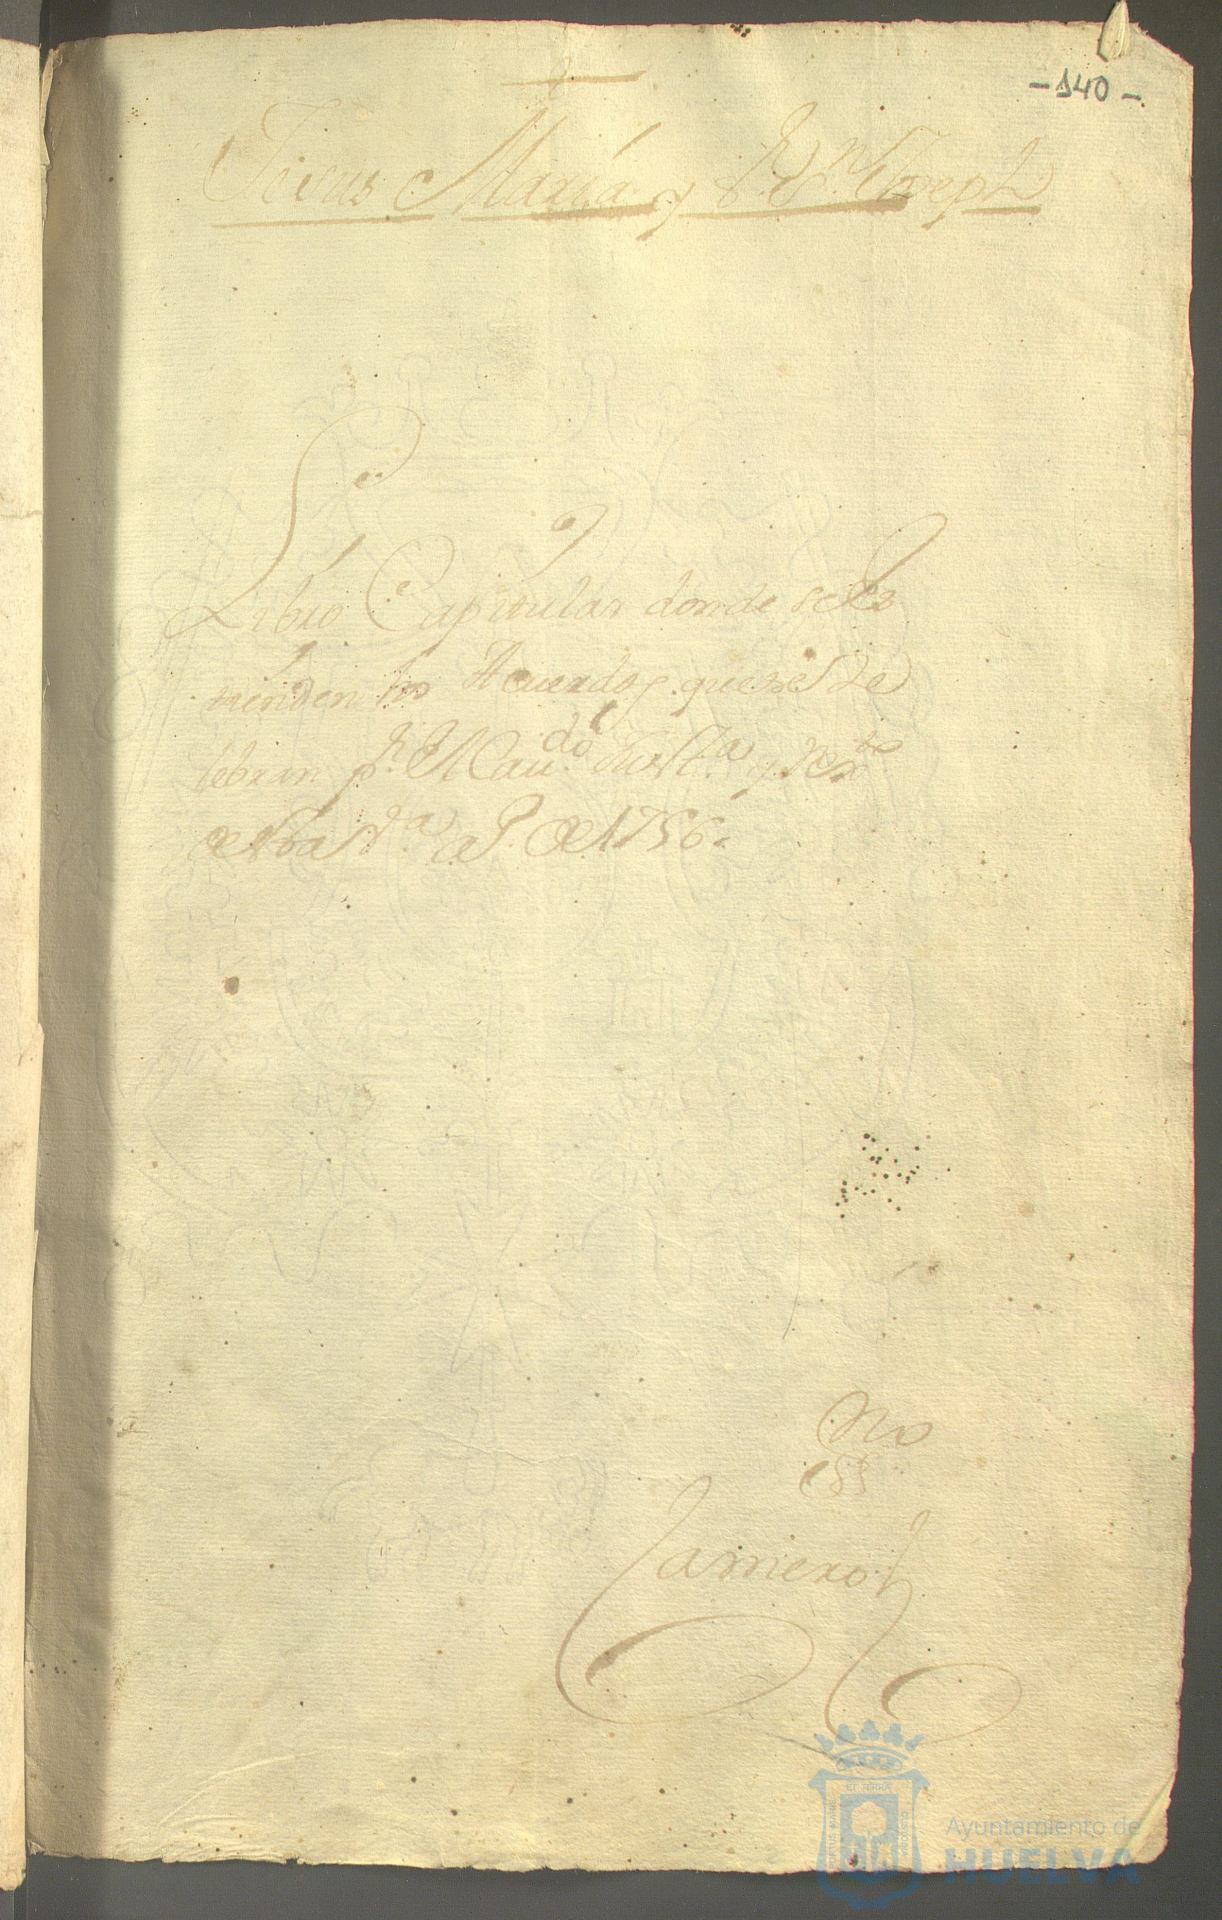 -140-
Jesus Maria y S.r S.n Joseph
Libro Capitular donde se es
tienden los Acuerdos que se ze
lebran p.r El Cau.do Just.a y Rex.to
de esta V.a a.s de 1756.
No
ess
Camero
Ayuntamiento de
HUELVA